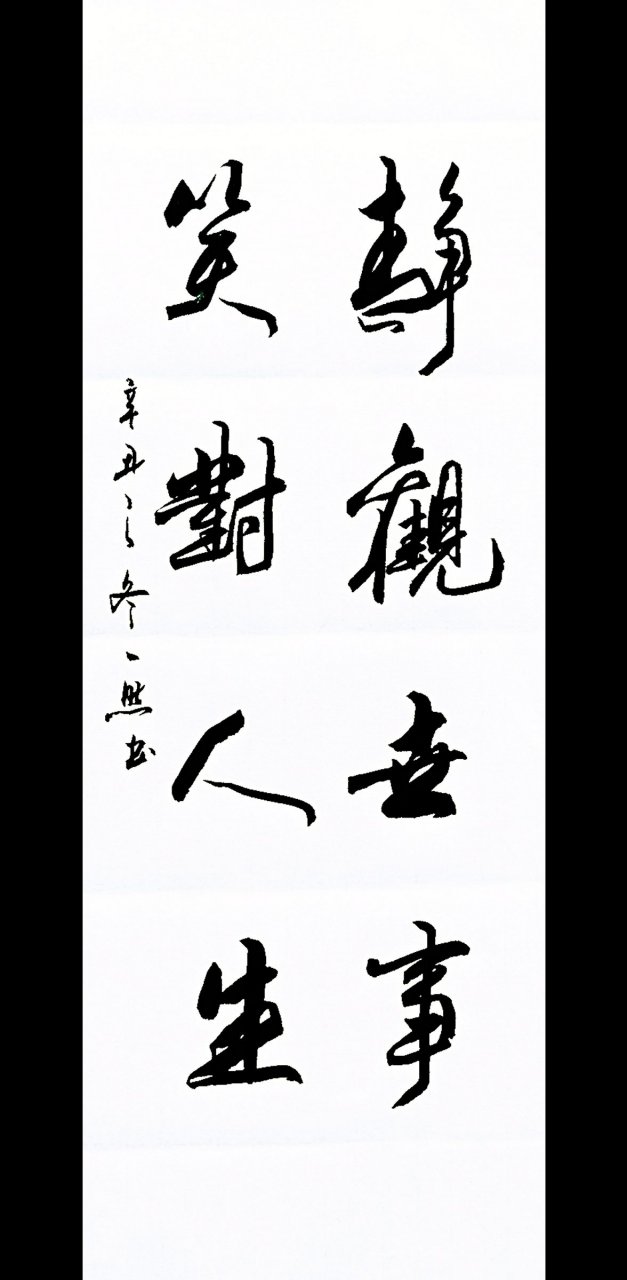 靜觀世事
笑對人生
辛丑之冬一熙书